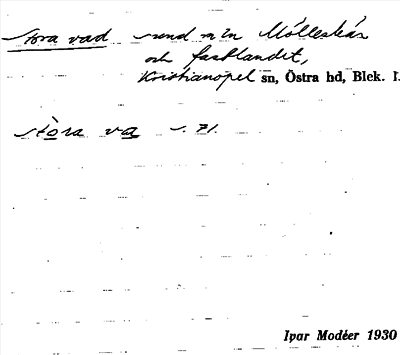 Stora vad sund m ln Mölleskär
och fastlandet,
Kristianopel sn, Östra hd, Blek. l.
stòra va s. 71.
Ivar Modéer 1930